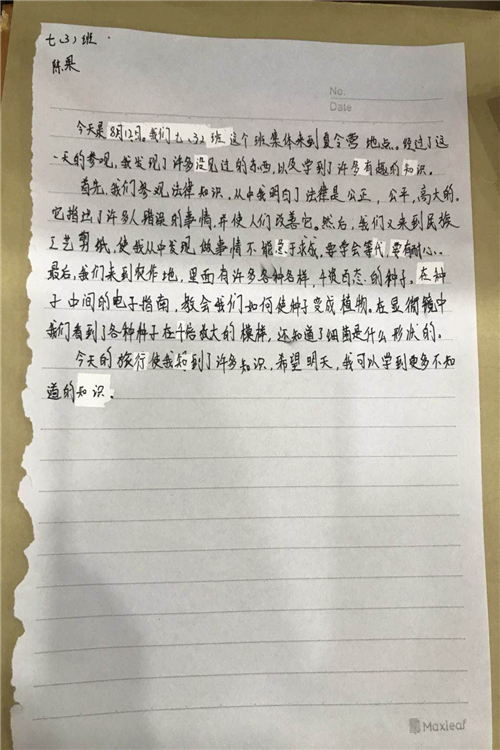 七、(3)班
陈果
No.
Date
今天是8月12日。我们七、(3)班这个班集体来到夏令营地点。经过了这
一天的参观，我发现了许多没见过的东西，以及学到了许多有趣的知识。
首先，我们参观法律知识，从中我明白了法律是公正，公平，高大的。
它指出了许多人错误的事情，并使人们改善它。然后，我们又来到民族
工艺剪纸，使我从中发现做事情不能急于求成，要学会等代，要有耐心。
最后，我们来到农作地，里面有许多各种各样，千姿百态的种子。在种
子中间的电子指南，教会我们如何使种子变成植物。在显微镜中
我们看到了各种种子在千倍放大的模样，还知道了细菌是什么形状的。
今天的旅行使我知到了许多知识，希望明天，我可以学到更多不知
道的知识。
Maxleaf